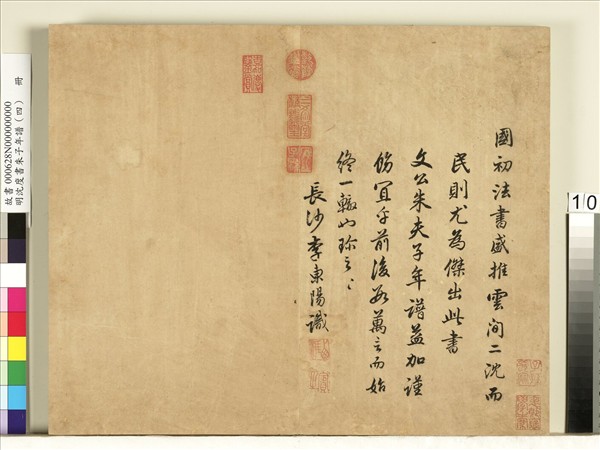 國初法書盛推雲間二沈而
民則尤為傑出此書
文公朱夫子年譜益加謹
飭宜乎前後數萬言而始
終一轍也珍之々
長沙李東陽識
故書000628N000000000
明沈度書朱子年譜(四) 冊
10